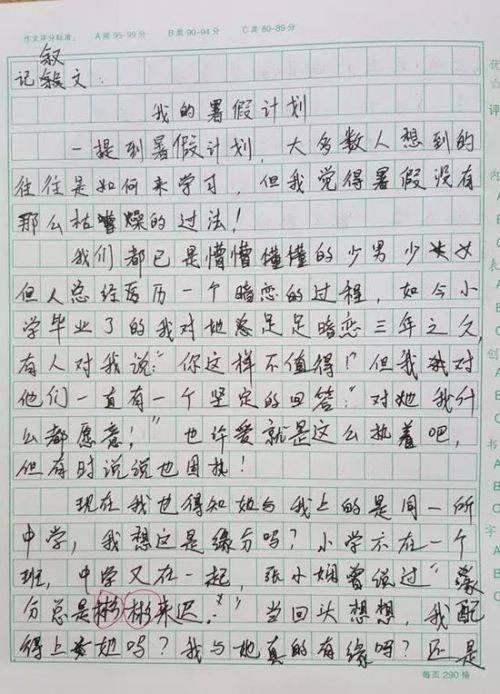 作文评分标准： A类 95-99分 B类 90-94分 C类 80-89分
叙
记叙文：
我的暑假计划
一提到暑假计划，大多数人想到的
往往是如何来学习，但我觉得暑假没有
那么枯燥的过法！
我们都已是懵懵懂懂的少男少女
但人总经历一个暗恋的过程，如今小
学毕业了的我对她足足暗恋三年之久，
有人对我说："你这样不值得！"但我对
他们一直有一个坚定的回答："对她我什
么都愿意！"也许爱就是这么执着吧，
但有时说说也固执！
现在我也得知她与我上的是同一所
中学，我想这是缘分吗？小学不在一个
班，中学又在一起，张小娴曾说过"缘
分总是彬彬来迟。"当回头想想，我配
得上她吗？我与她真的有缘吗？还是
每页 290 格
优
☆
评
内
表
创
书
字